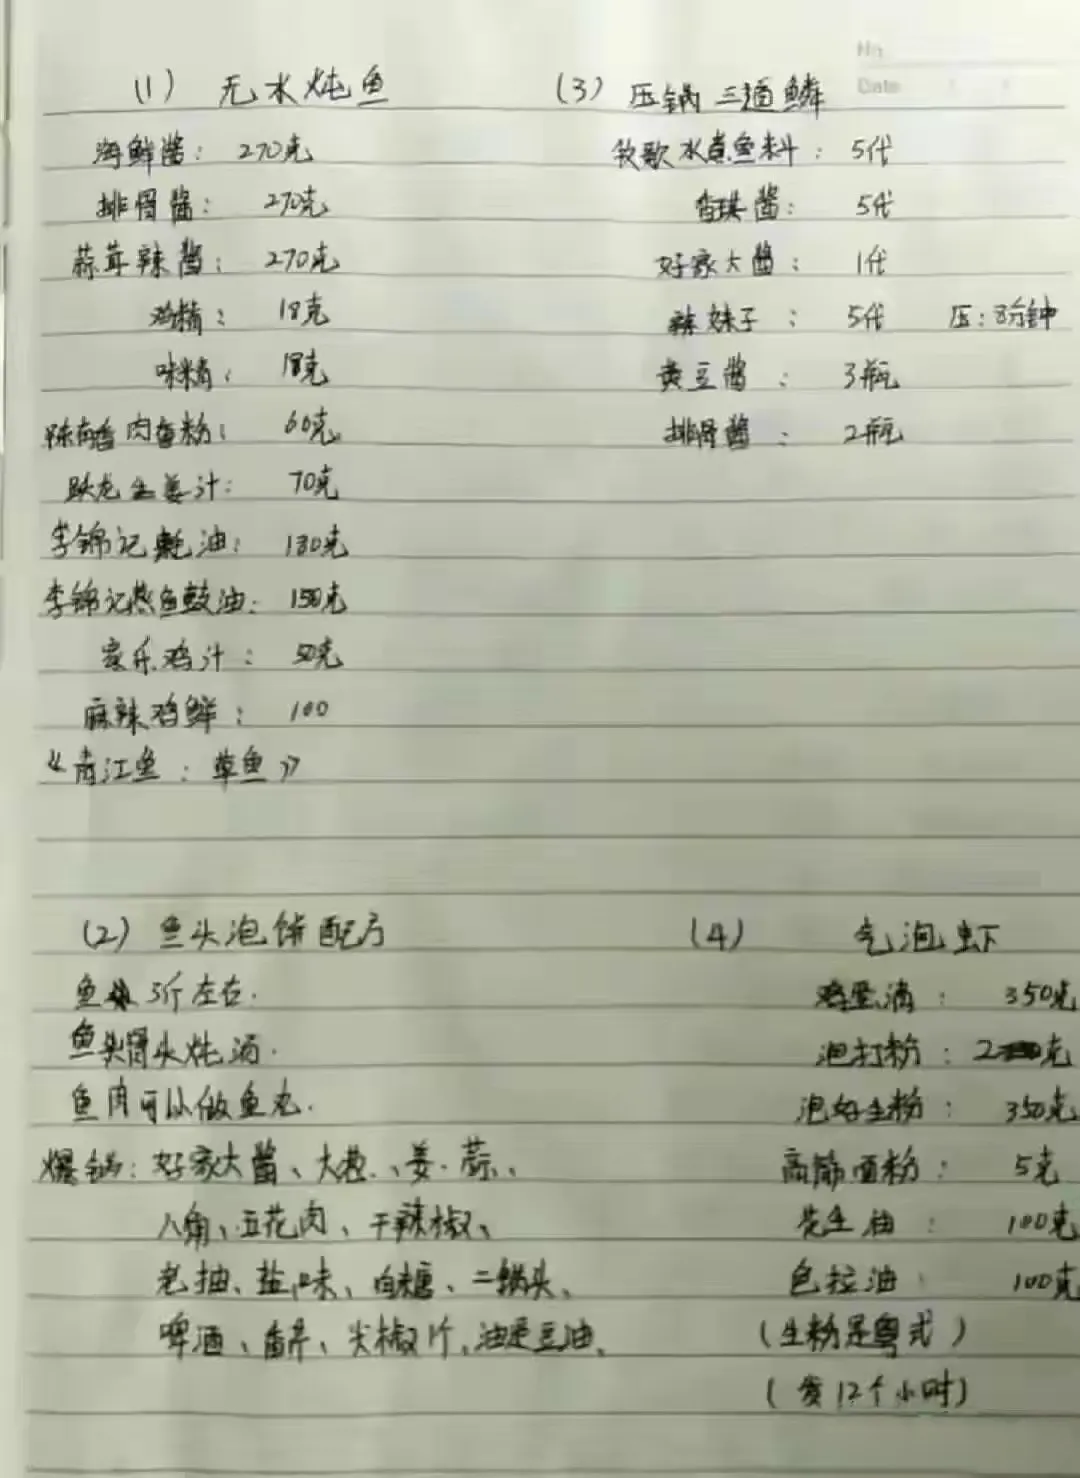 No
Date
(1) 无水炖鱼
海鲜酱: 270克
排骨酱: 270克
蒜茸辣酱: 270克
鸡精: 18克
味精: 18克
肉香粉: 60克
生姜汁: 70克
李锦记耗油: 180克
李锦记蒸鱼鼓油: 150克
家乐鸡汁: 50克
麻辣鸡鲜: 100
《青江鱼: 草鱼》
(3) 压锅三道鳞
牧歌水煮鱼料: 5代
香琪酱: 5代
好家大酱: 1代
辣妹子: 5代 压: 8分钟
黄豆酱: 3瓶
排骨酱: 2瓶
(2) 鱼头泡饼配方
鱼 3斤左右.
鱼头骨头炖汤.
鱼肉可以做鱼丸.
爆锅: 好家大酱、大葱、姜、蒜、
八角、五花肉、干辣椒、
老抽、盐、味、白糖、二锅头、
啤酒、香芹、尖椒片、油是豆油、
(4) 气泡虾
鸡蛋清: 350克
泡打粉: 2克
泡好生粉: 350克
高筋面粉: 5克
花生油: 100克
色拉油: 100克
(生粉是粤式)
(发12个小时)